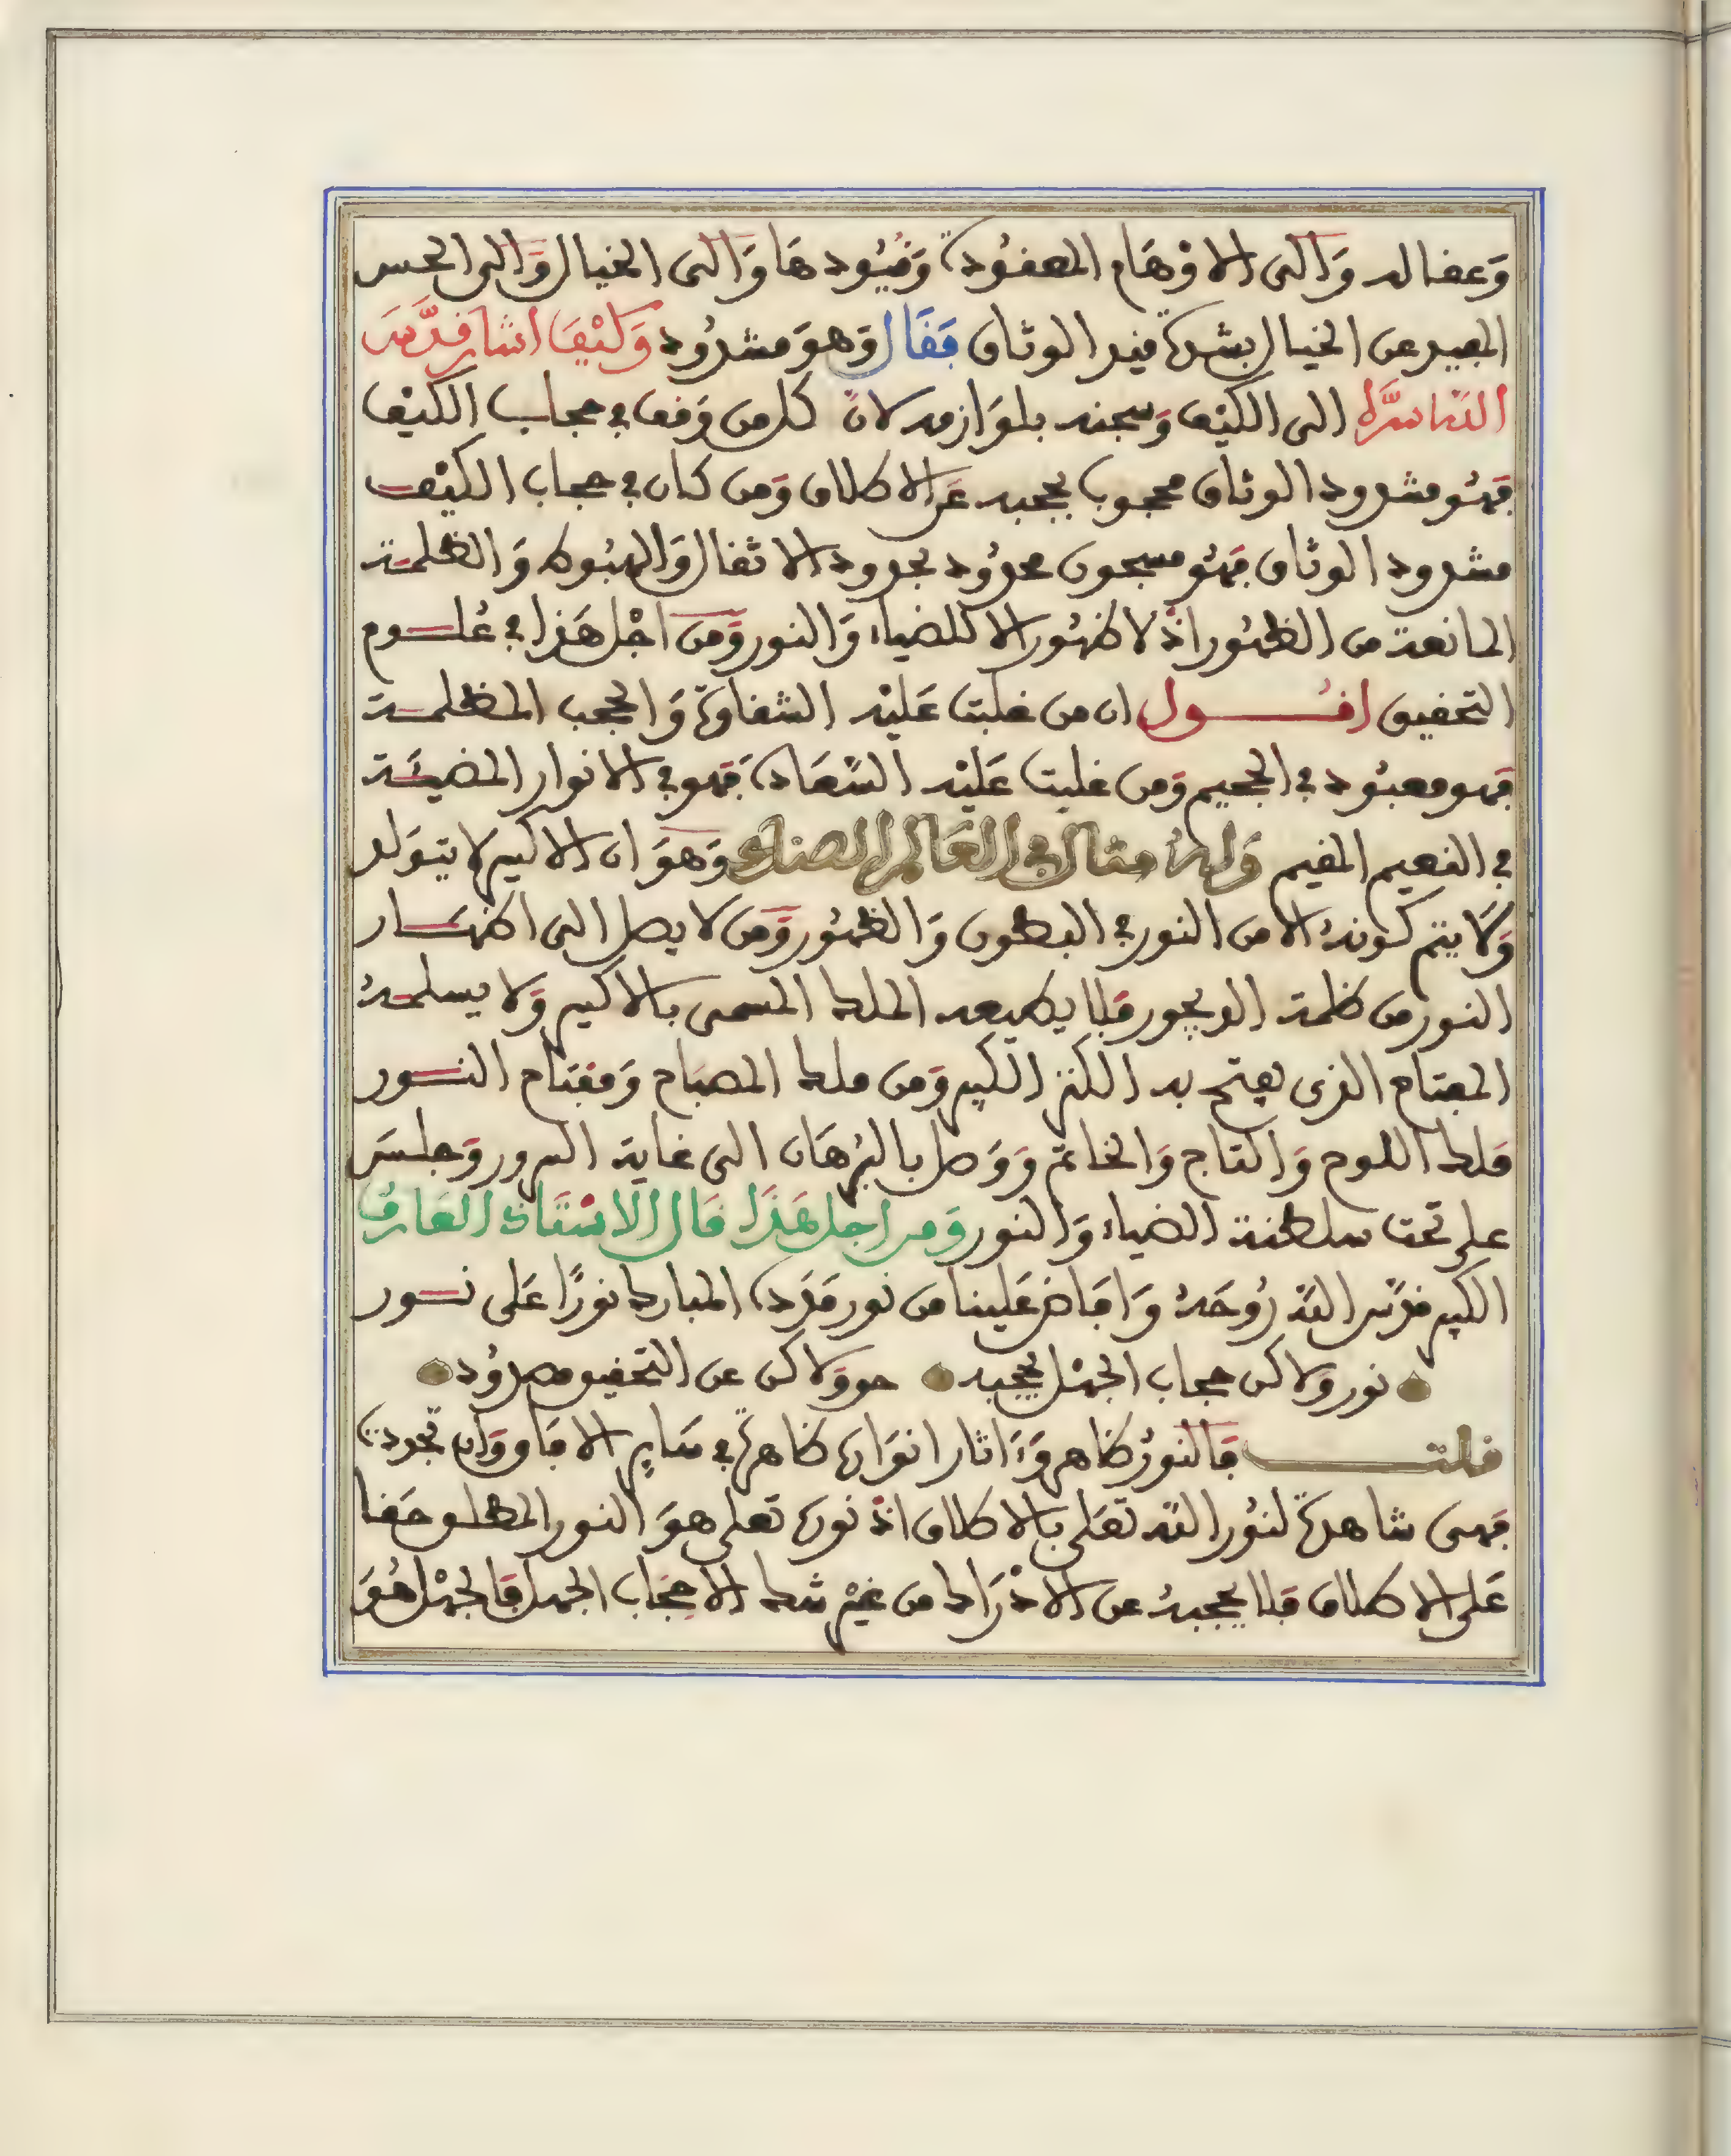 وَعقاله وَالى الاوْهام المعقُودة وَقيُودهَا وَالى الخيال وَالى الحس
البعيد عن الخيال بشدة قيد الوثاق فَقَال وَهوَ مشدُود وَكيْفَ اشار قدَّسَ
اللهُ سرَّه الى الكثيْف وَسجنه بلوَازمه لانّ كل من وَقف في حجاب الكثيْف
فهُو مشدود الوثاق محجوب بحجبه عَن الاطلاق وَمن كان في حجاب الكثيْف
مشدود الوثاق فهُو مسجون محدُود بحدود الاثقال وَالهبُوط وَالظلمة
المانعة من الظهُور اذْ لا ظهُور الا للضياء وَالنور وَمن اجْل هَذا في عُلوم
التحقيق اقُول ان من غلبت عَليْه الشقاوَة وَالحجب المظلمة
فهو معبُود في الجحيم وَمن غلبت عَليْه السَّعَادة فهو في الانوار المضيئَة
في النعيم المقيم وَلهُ مثال في العَالم الصناعي وَهوَ ان الاكسير لا يتوَلد
وَلَا يتم كوْنهُ الا من النور في البطون وَالظهُور وَمن لا يصل الى اظهَار
النور من ظلمة الديجور فلا يطيعه الملك المسمى بالاكسير وَلا يسلمهُ
المفتاح الذي يفتح به الكنز الكبير وَمن ملك المصبَاح وَمفتاح النور
مَلك اللوح وَالتاج وَالخاتم وَوَصل بالبُرهَان الى غاية السرور وَجلسَ
على تحت سلطنة الضياء وَالنور وَمن اجل هَذَا قَال الَاسْتَاذ العَارفُ
الكبير قدّس اللهُ رُوحَهُ وَافاض عَلينا من نور مَدَدة المبارك نورًا عَلى نور
نور وَلاكن حجاب الجهْل يحجبه حق وَلاكن عن التحقيق مصدُود
قلت فَالنورُ ظاهر وَءَاثار انوَاره ظاهرة في سَاير الافاق وَان تجردت
فهى شاهدة لنُور الله تعَلى بالاطلاق اذْ نوره تعلى هوَ النور المطلق حَقا
عَلى الاطلاق فلا يحجبهُ عن الادْرَاك من غيْر شك الا حجَاب الجهل فَالجهْل هُوَ